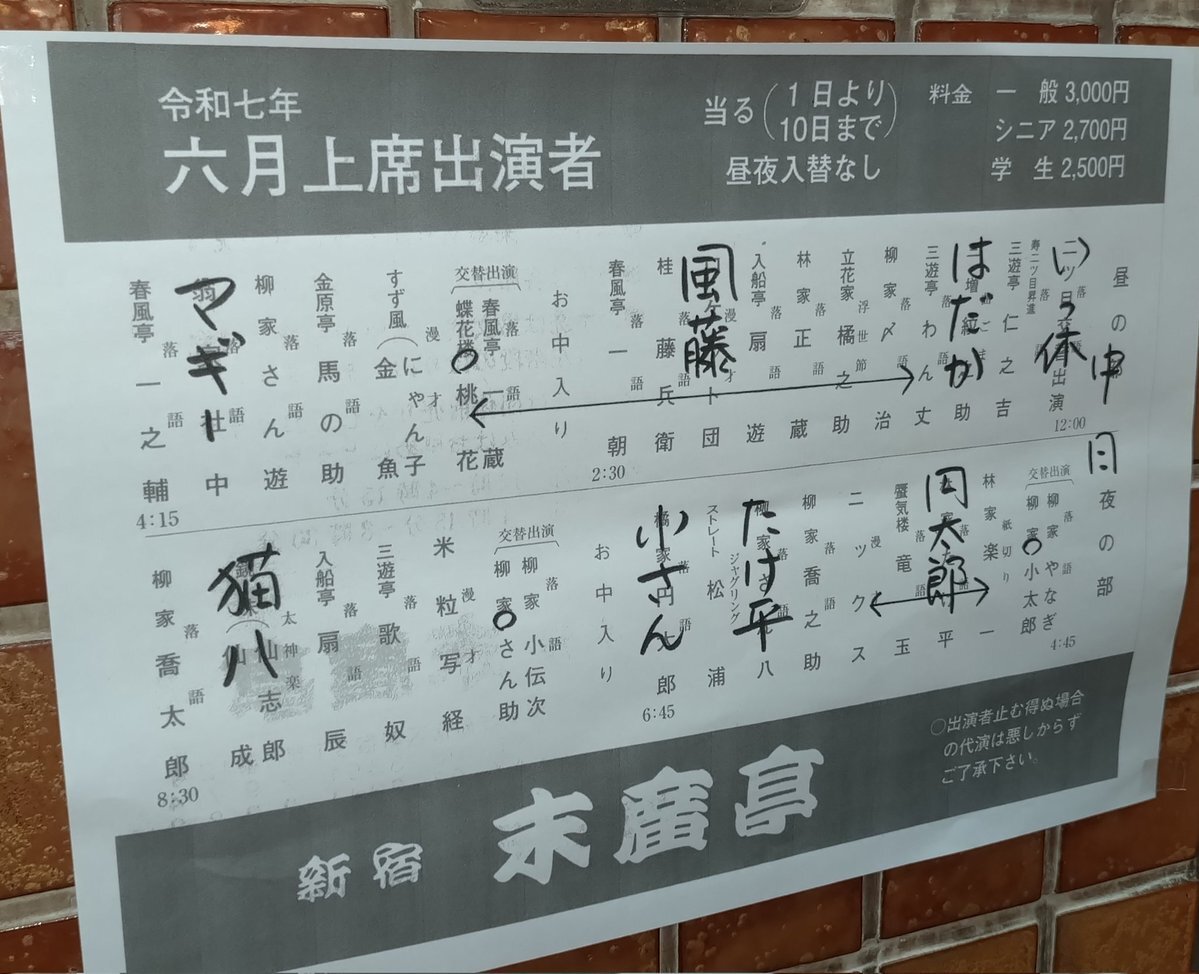 令和七年
六月上席出演者
当る(1日より10日まで)
昼夜入替なし
料金 一般 3,000円
シニア 2,700円
学生 2,500円
昼の部
12:00
二ツ目 交替出演
寿二ツ目昇進
落語 三遊亭 仁之吉
はだか
落語 三遊亭 わん丈
柳家 〆治
浮世節 立花家 橘之助
落語 林家 正蔵
落語 入船亭 扇遊
風藤
落語 桂 藤兵衛
落語 春風亭 一朝
2:30
お中入り
交替出演
落語 春風亭 一蔵
蝶花楼 桃花
漫才 すず風 にゃん子 金魚
落語 金原亭 馬の助
落語 柳家 さん遊
マギー
落語 春風亭 一之輔
4:15
中日
夜の部
4:45
交替出演
落語 柳家 やなぎ
柳家 小太郎
紙切り 林家 楽一
円太郎
落語 蜃気楼 竜玉
漫才 ニックス
落語 柳家 喬之助
たけ平
ジャグリング ストレート松浦
小さん
6:45
お中入り
交替出演
落語 柳家 小伝次
柳家 さん助
漫才 米粒写経
落語 三遊亭 歌奴
落語 入船亭 扇辰
猫八
落語 柳家 喬太郎
8:30
○出演者止む得ぬ場合
の代演は悪しからず
ご了承下さい。
新宿 末廣亭